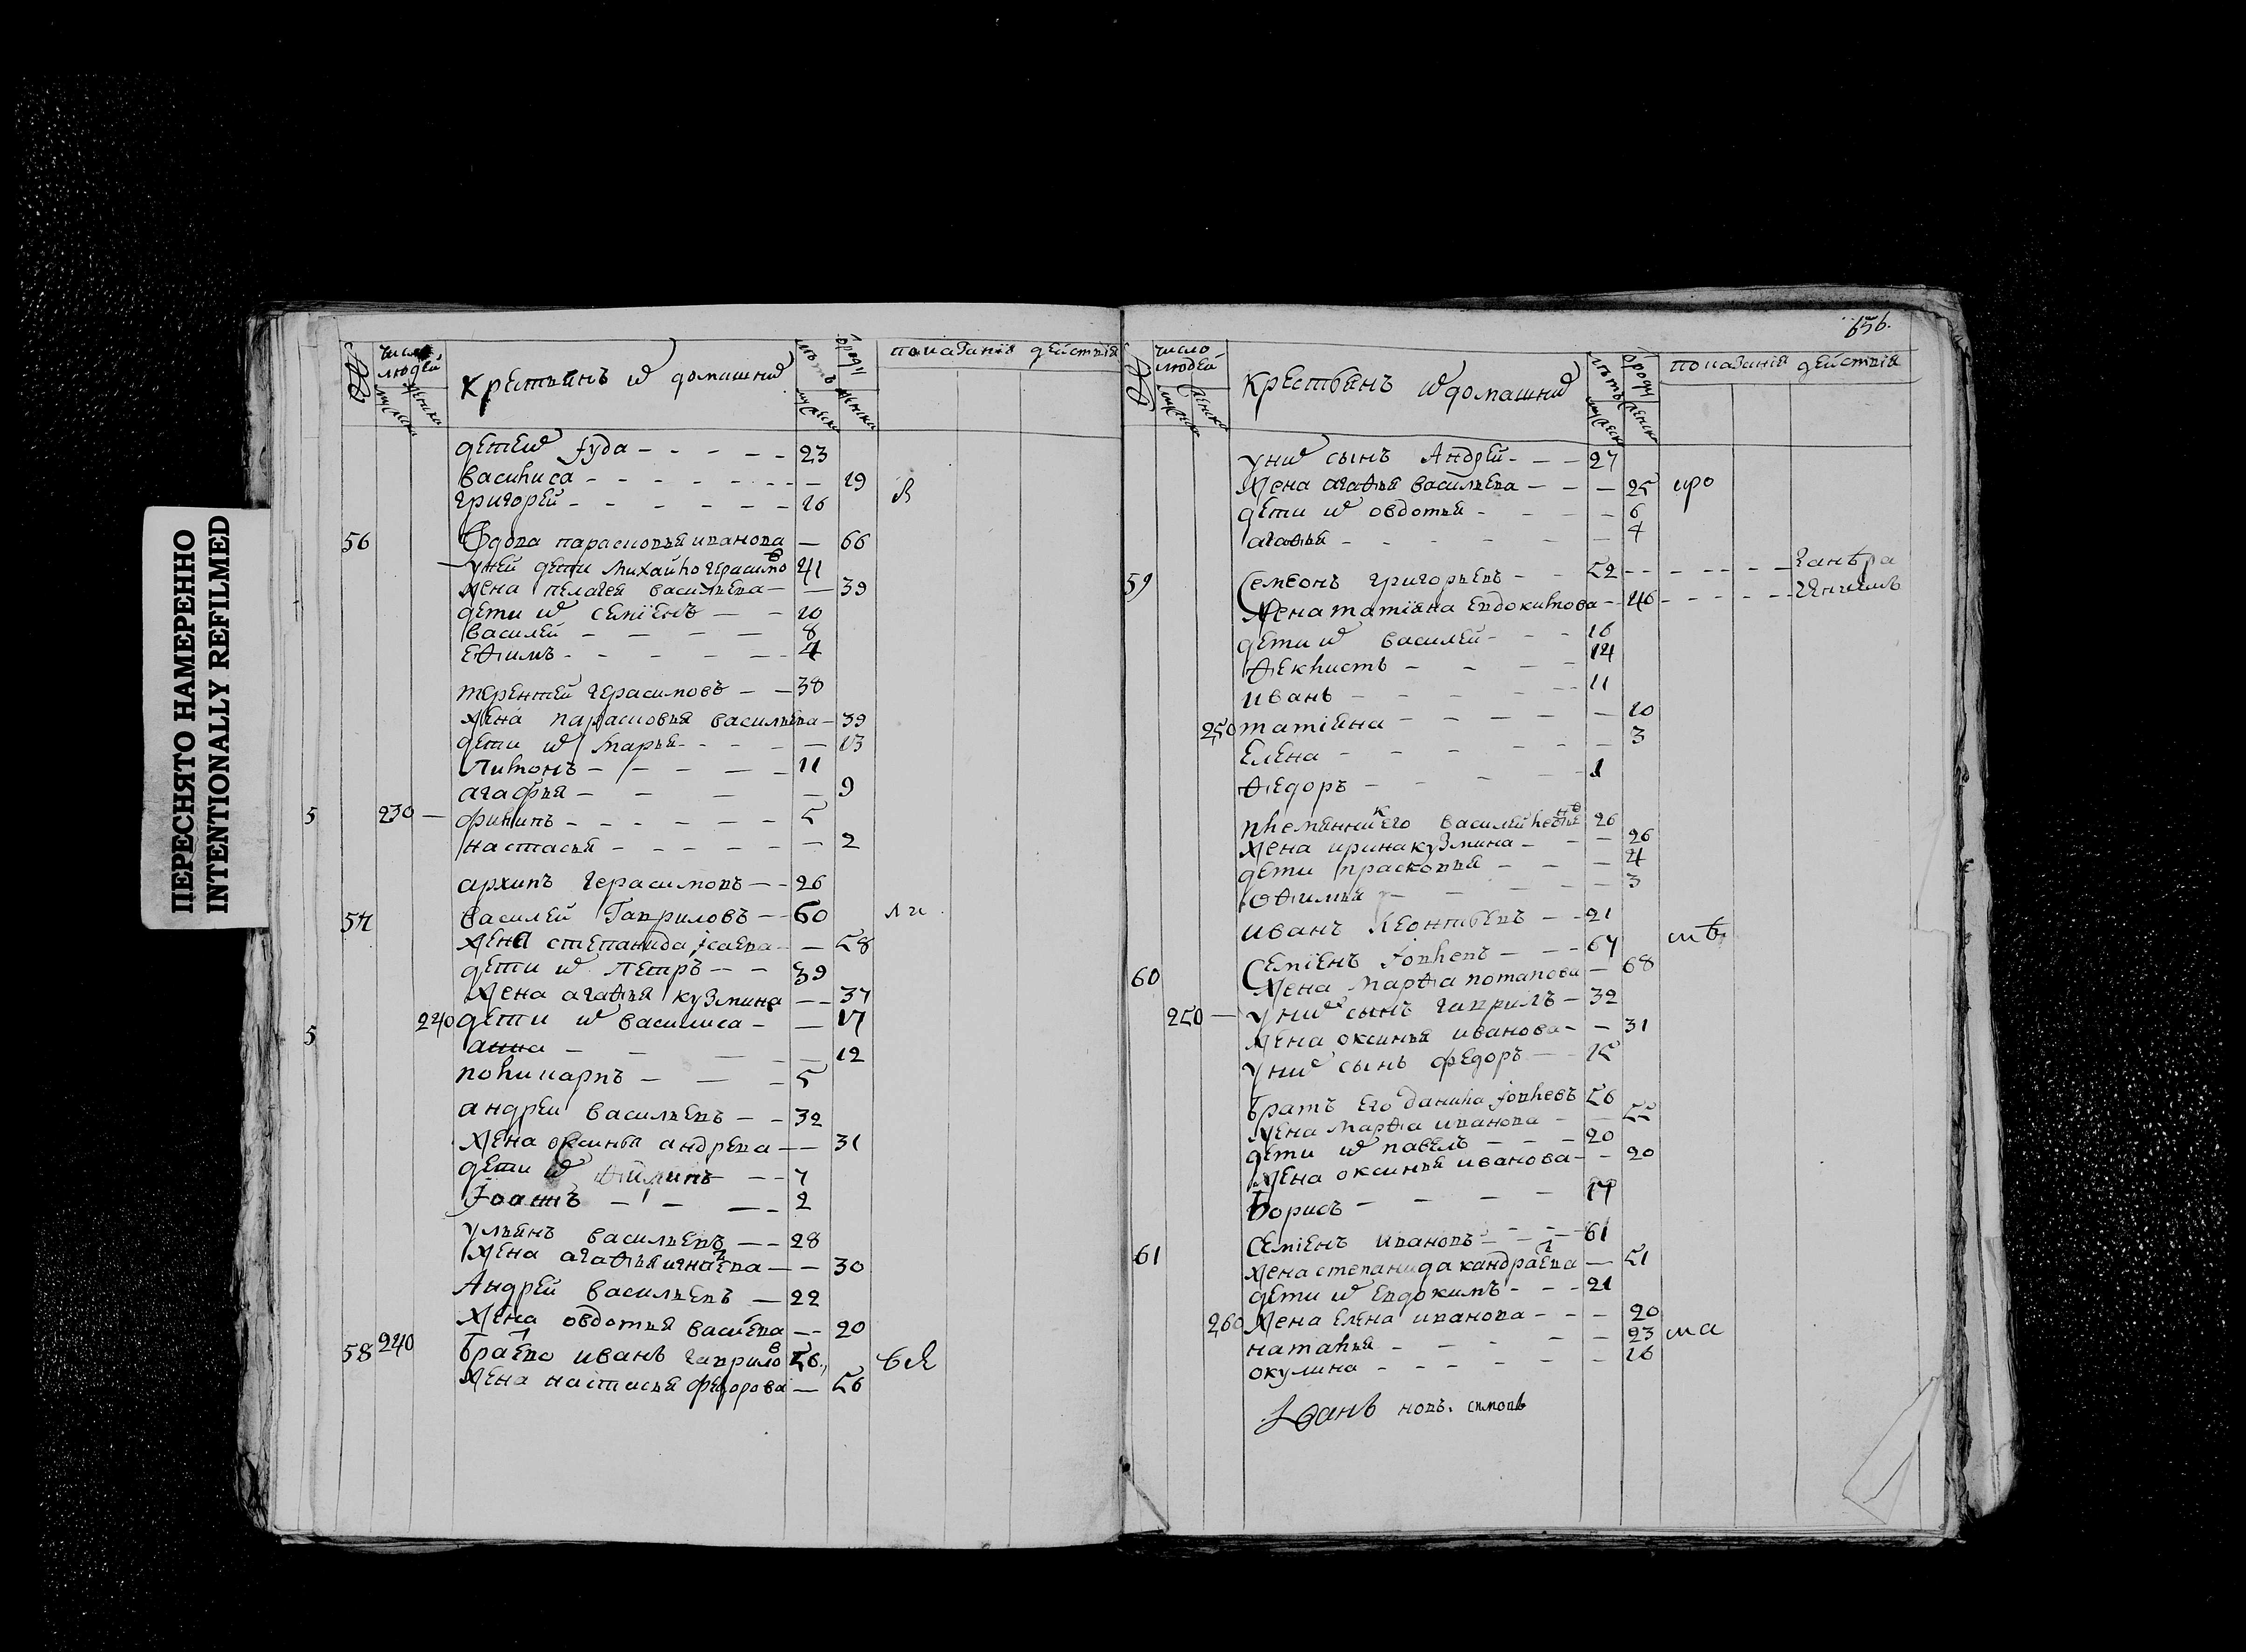 ПЕРЕСНЯТО НАМЕРЕННО
INTENTIONALLY REFILMED
число людей
крестьянъ и домашнихъ
показанія действія
детеи їуда - - - - - 23
василиса - - - - - - - 19
григорей - - - - - - 16
56 вдова парасковья иванова — 66
у ней дети михайло герасимовъ 41
жена пелагея васильева — 39
дети их семіенъ — — 10
василей — — — — 8
ефимъ - - - - - 4
терентей герасимовъ — — 38
жена парасковья васильева — 39
дети их марья - - - — 13
литонъ — — — — 11
агафья — — — — 9
5 230 — филипъ - - - - - 5
настасья - - - - - — 2
архипъ герасимовъ — — 26
57 василей гавриловъ — — 60
жена степанида їсаева — — 58
дети их петръ — — 39
жена агафья кузмина — — 37
240 дети их василиса — — 17
5
анна — — — — 12
поликарпъ — — — 5
андреи васильевъ — — 32
жена оксинья андрева — — 31
дети их филипъ — — 7
їоаннъ — — — — 2
ульянъ васильевъ — — 28
жена агафья игнатева — — 30
Андрей васильевъ — 22
жена овдотья васиева — — 20
58 240 брат ево иванъ гавриловъ 56
жена настасья федорова — 56
656.
число людей
крестьянъ и домашнихъ
показанія действія
у них сынъ Андрей - — — 27
жена агафья васильева — — — 25
дети их овдотья - — — — 6
агафья - - - - - — 4
59 семеонъ григорьевъ — — 52
жена татіяна евдокимова — 46
дети их василей - - - 16
феклистъ — - — — 14
иванъ — — — — — 11
250 татіяна — — — — — 10
елена — — — — — 3
федоръ — — — — 1
племянник его василей леонтьевъ 26
жена ирина кузмина - — — 26
дети прасковья — — — 4
офимья — — — — 3
иванъ леонтьевъ — — 21
60 семіенъ їовлевъ - — — 67
жена марфа потапова — 68
250 — у них сынъ гаврилъ — 32
жена оксинья иванова - — 31
у них сынъ федоръ — — 15
братъ его данило їовлевъ 56
жена марфа иванова — — 55
дети их павелъ — — — 20
жена оксинья иванова — — 20
борисъ — — — — 17
61 семіенъ ивановъ — — — 61
жена степанида кандратева — 51
дети их евдокимъ - - - 21
260 жена елена иванова - - - 20
наталья - - - - - 23
окулина - - - - - - 16